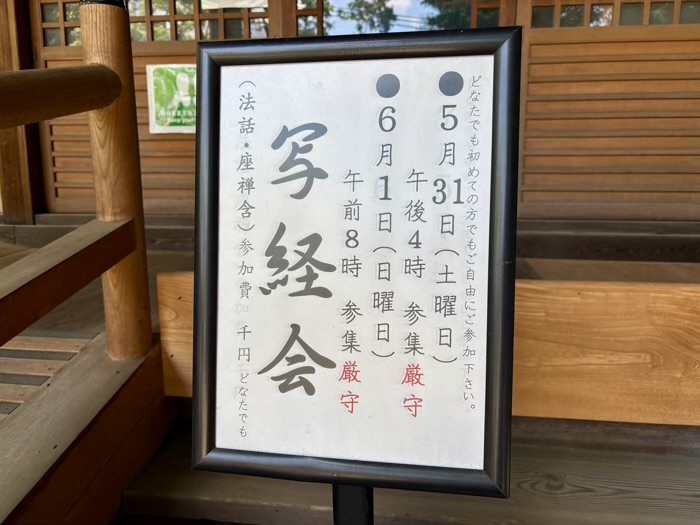 どなたでも初めての方でもご自由にご参加下さい。
●5月31日(土曜日)
午後4時 参集厳守
●6月1日(日曜日)
午前8時 参集厳守
写経会
(法話・座禅含)参加費 千円 どなたでも